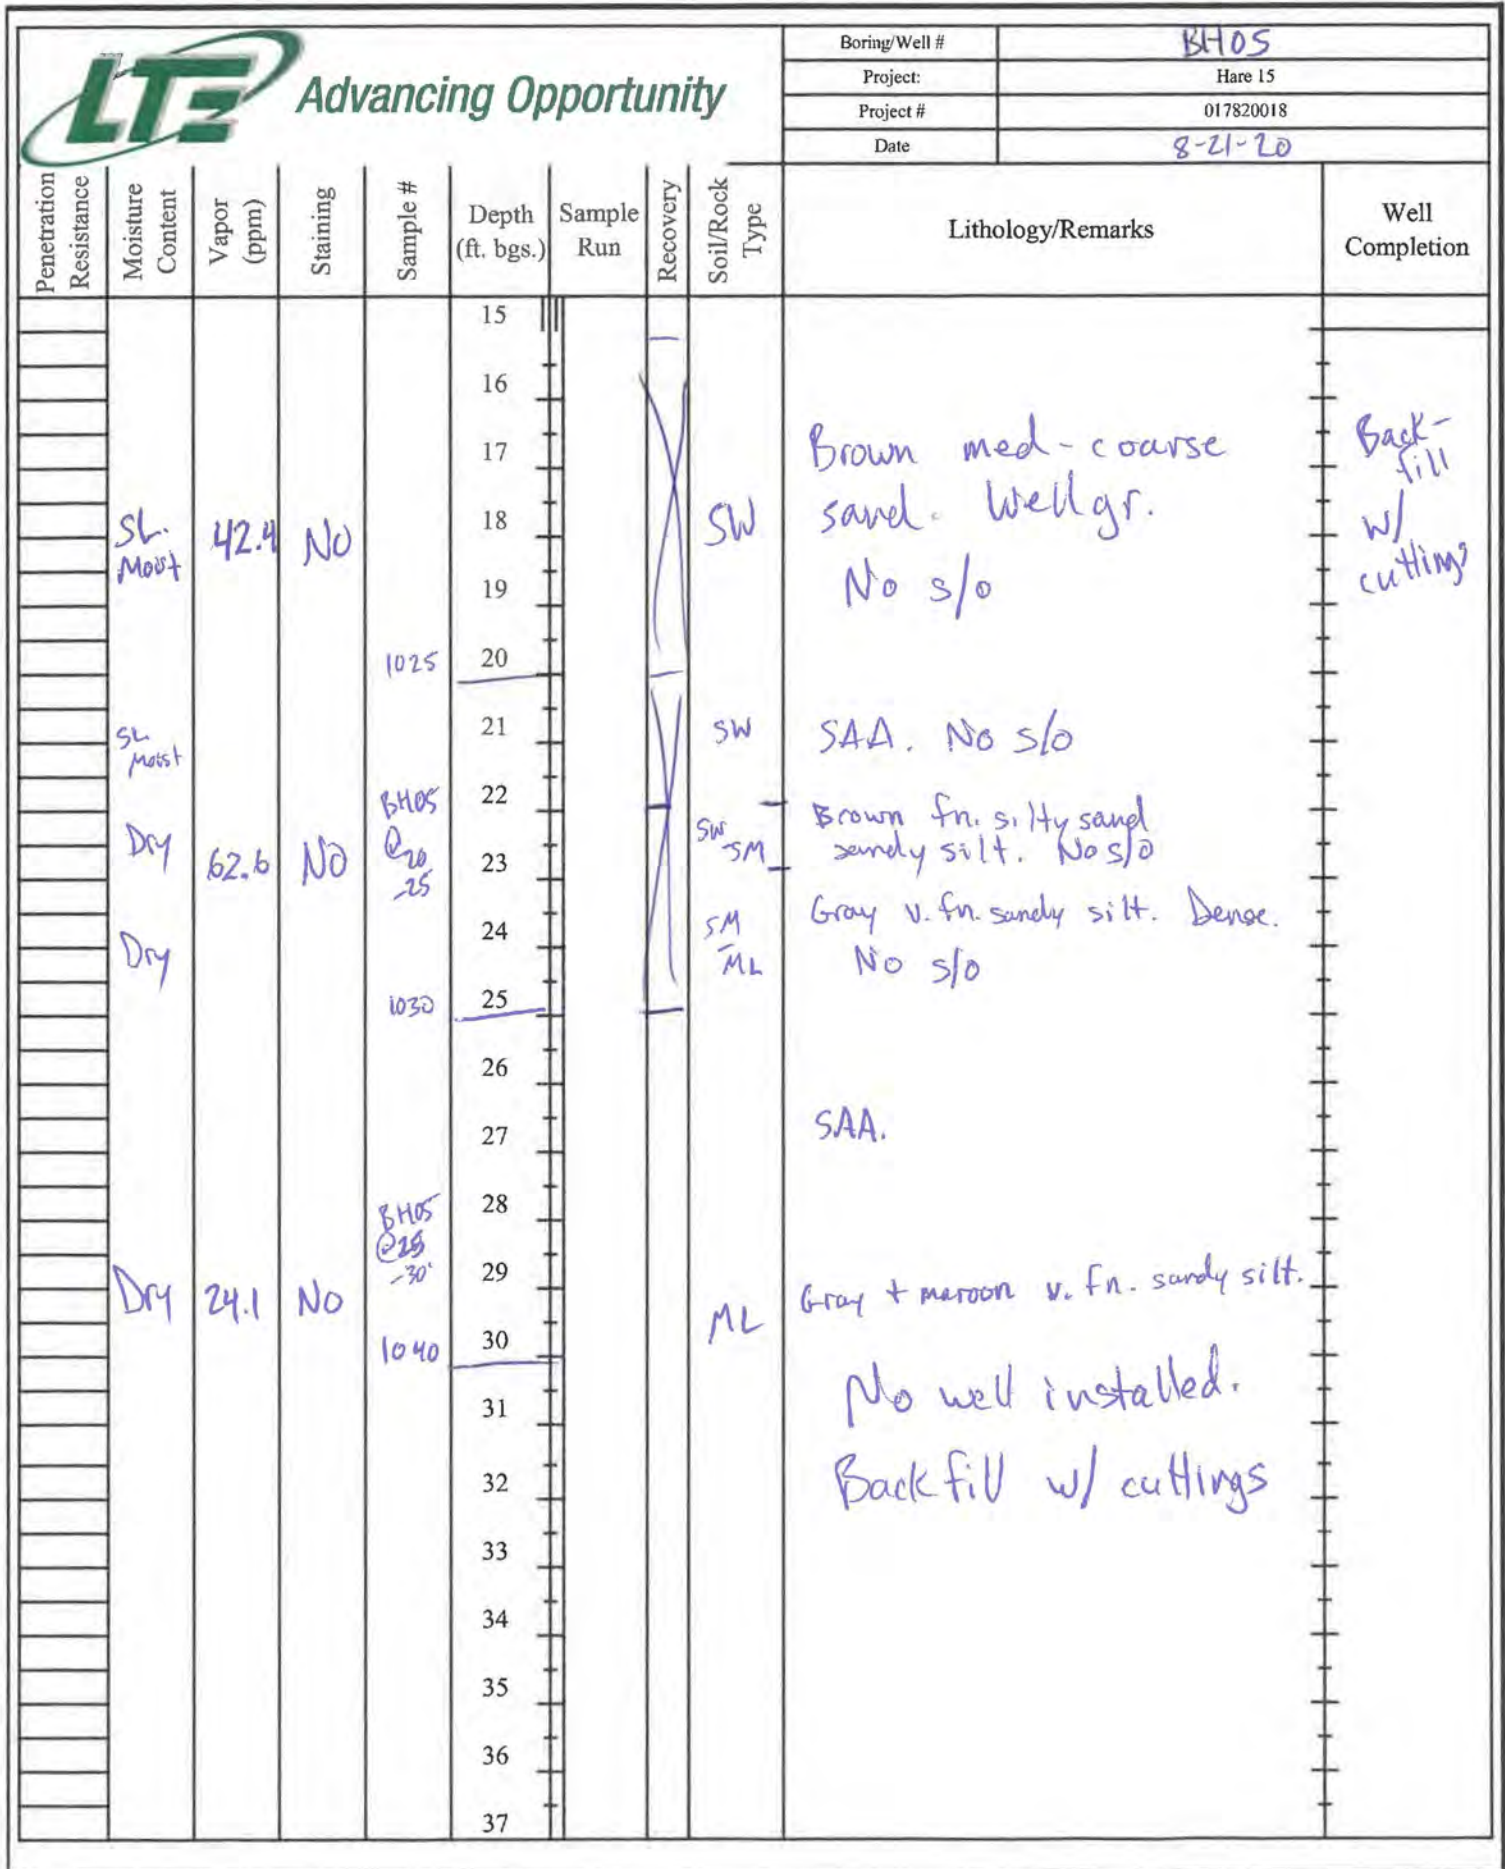 LTE Advancing Opportunity
Boring/Well # BH05
Project: Hare 15
Project # 017820018
Date 8-21-20
Penetration
Resistance
Moisture
Content
Vapor
(ppm)
Staining
Sample #
Depth
(ft. bgs.)
Sample
Run
Recovery
Soil/Rock
Type
Lithology/Remarks
Well
Completion
15
16
17
Brown med-coarse
Back-
fill
18
SL.
Moist
42.4
No
SW
sand. Well gr.
w/
cuttings
19
No s/o
1025
20
21
SL
Moist
SW
SAA. No s/o
22
BH05
@20
-25
Dry
62.6
No
SW
-SM
Brown fn. silty sand
sandy silt. No s/o
23
24
Dry
SM
-
ML
Gray v. fn. sandy silt. Dense.
No s/o
1030
25
26
27
SAA.
28
BH05
@25
-30'
29
Dry
24.1
No
ML
Gray + maroon v. fn. sandy silt.
1040
30
31
No well installed.
32
Backfill w/ cuttings
33
34
35
36
37